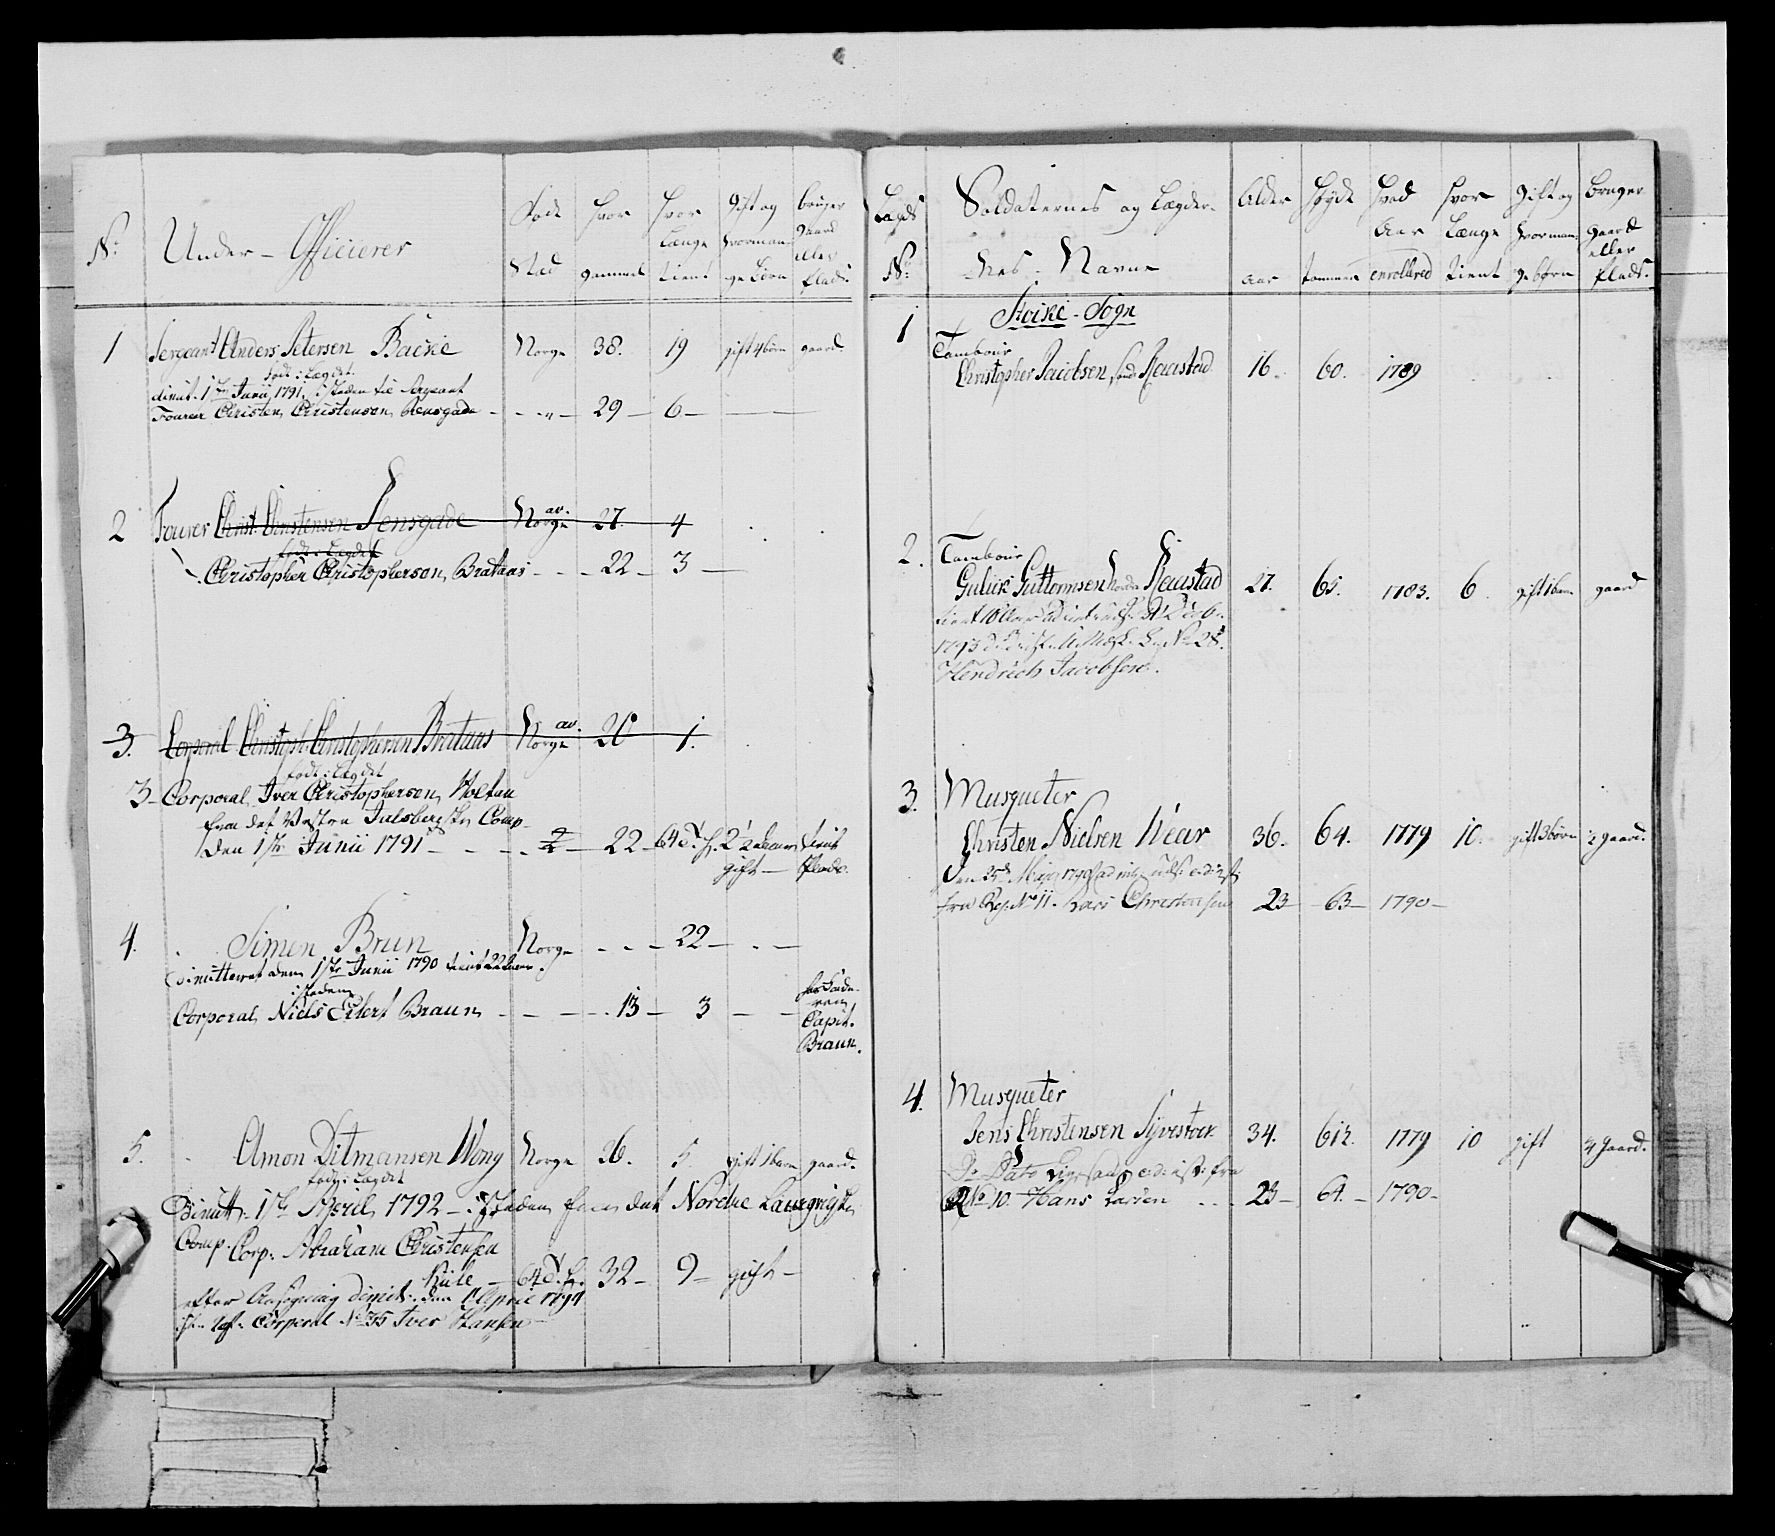 No. Under-Officierer Føde Stad Hvor gammel Hvor længe tient Gift og hvor mange Børn bruger gaard eller plads.
1 Sergeant Anders Petersen Backe Norge 38. 19 gift 4 børn gaard.
født i Lægdet.
dimit. 1ste Junii 1791, i steden til Sergeant
Fourer Christen Christensen Rensgade - - - " - 29 - 6 -
2 Fourer Christ: Christensen Rensgade Norge 27. 4
født i Lægdet
Christopher Christophersen Brataas - - - 22 - 3 -
3. Corporal Christoph: Christophersen Brataas Norge 20 1.
født i Lægdet
3 - Corporal Iver Christophersen Holtan
fra det Vestre Jarlsbergske Comp.
den 1ste Junii 1791 - - - 22 -
gift - Plads.
4. Simon Brun Norge - - - 22 - - -
Dimitteret den 1ste Junii 1790 tient 22 Aar.
i steden
Corporal Niels Eilert Braun - - - 13 - 3 - -
Capit.
Braun.
5. Amon Ditmansen Wong Norge 26. 5. gift 1 barn gaard.
født i Lægdet
Dimitt. 1ste April 1792 - i steden fra det Nordre Laurvigske
Comp. Corp. Abraham Christensen
- 32 - 9 - gift -
efter Ansøgning dimit: den 1 April 1794
Corporal No 75 Iver Hansen
Lægds No. Soldaternes og Lægdernes Navne Alder aar Høyde tommer Hvad Aar enrollered Hvor Længe tient Gift og hvor mange børn Bruger gaard eller plads.
1 Stocke - Sogn
Tambour
Christopher Jacobsen Raastad 16. 60. 1789
2. Tambour
Gulich Guttormsen Raastad 27. 65. 1783. 6. gift 1 barn gaard
tient 10 Aar
1793
Hendrich Jacobsen.
3. Musqueter
Christen Nielsen Wear 36. 64. 1779 10. gift 3 børn ½ gaard.
Den 25de
fra Lars Christensen 23 - 63 - 1790 -
4. Musqueter
Jens Christensen 34. 61½. 1779 10 gift gaard.
Dato fra
No 10. Hans Larsen - - 23 - 64. - 1790 -